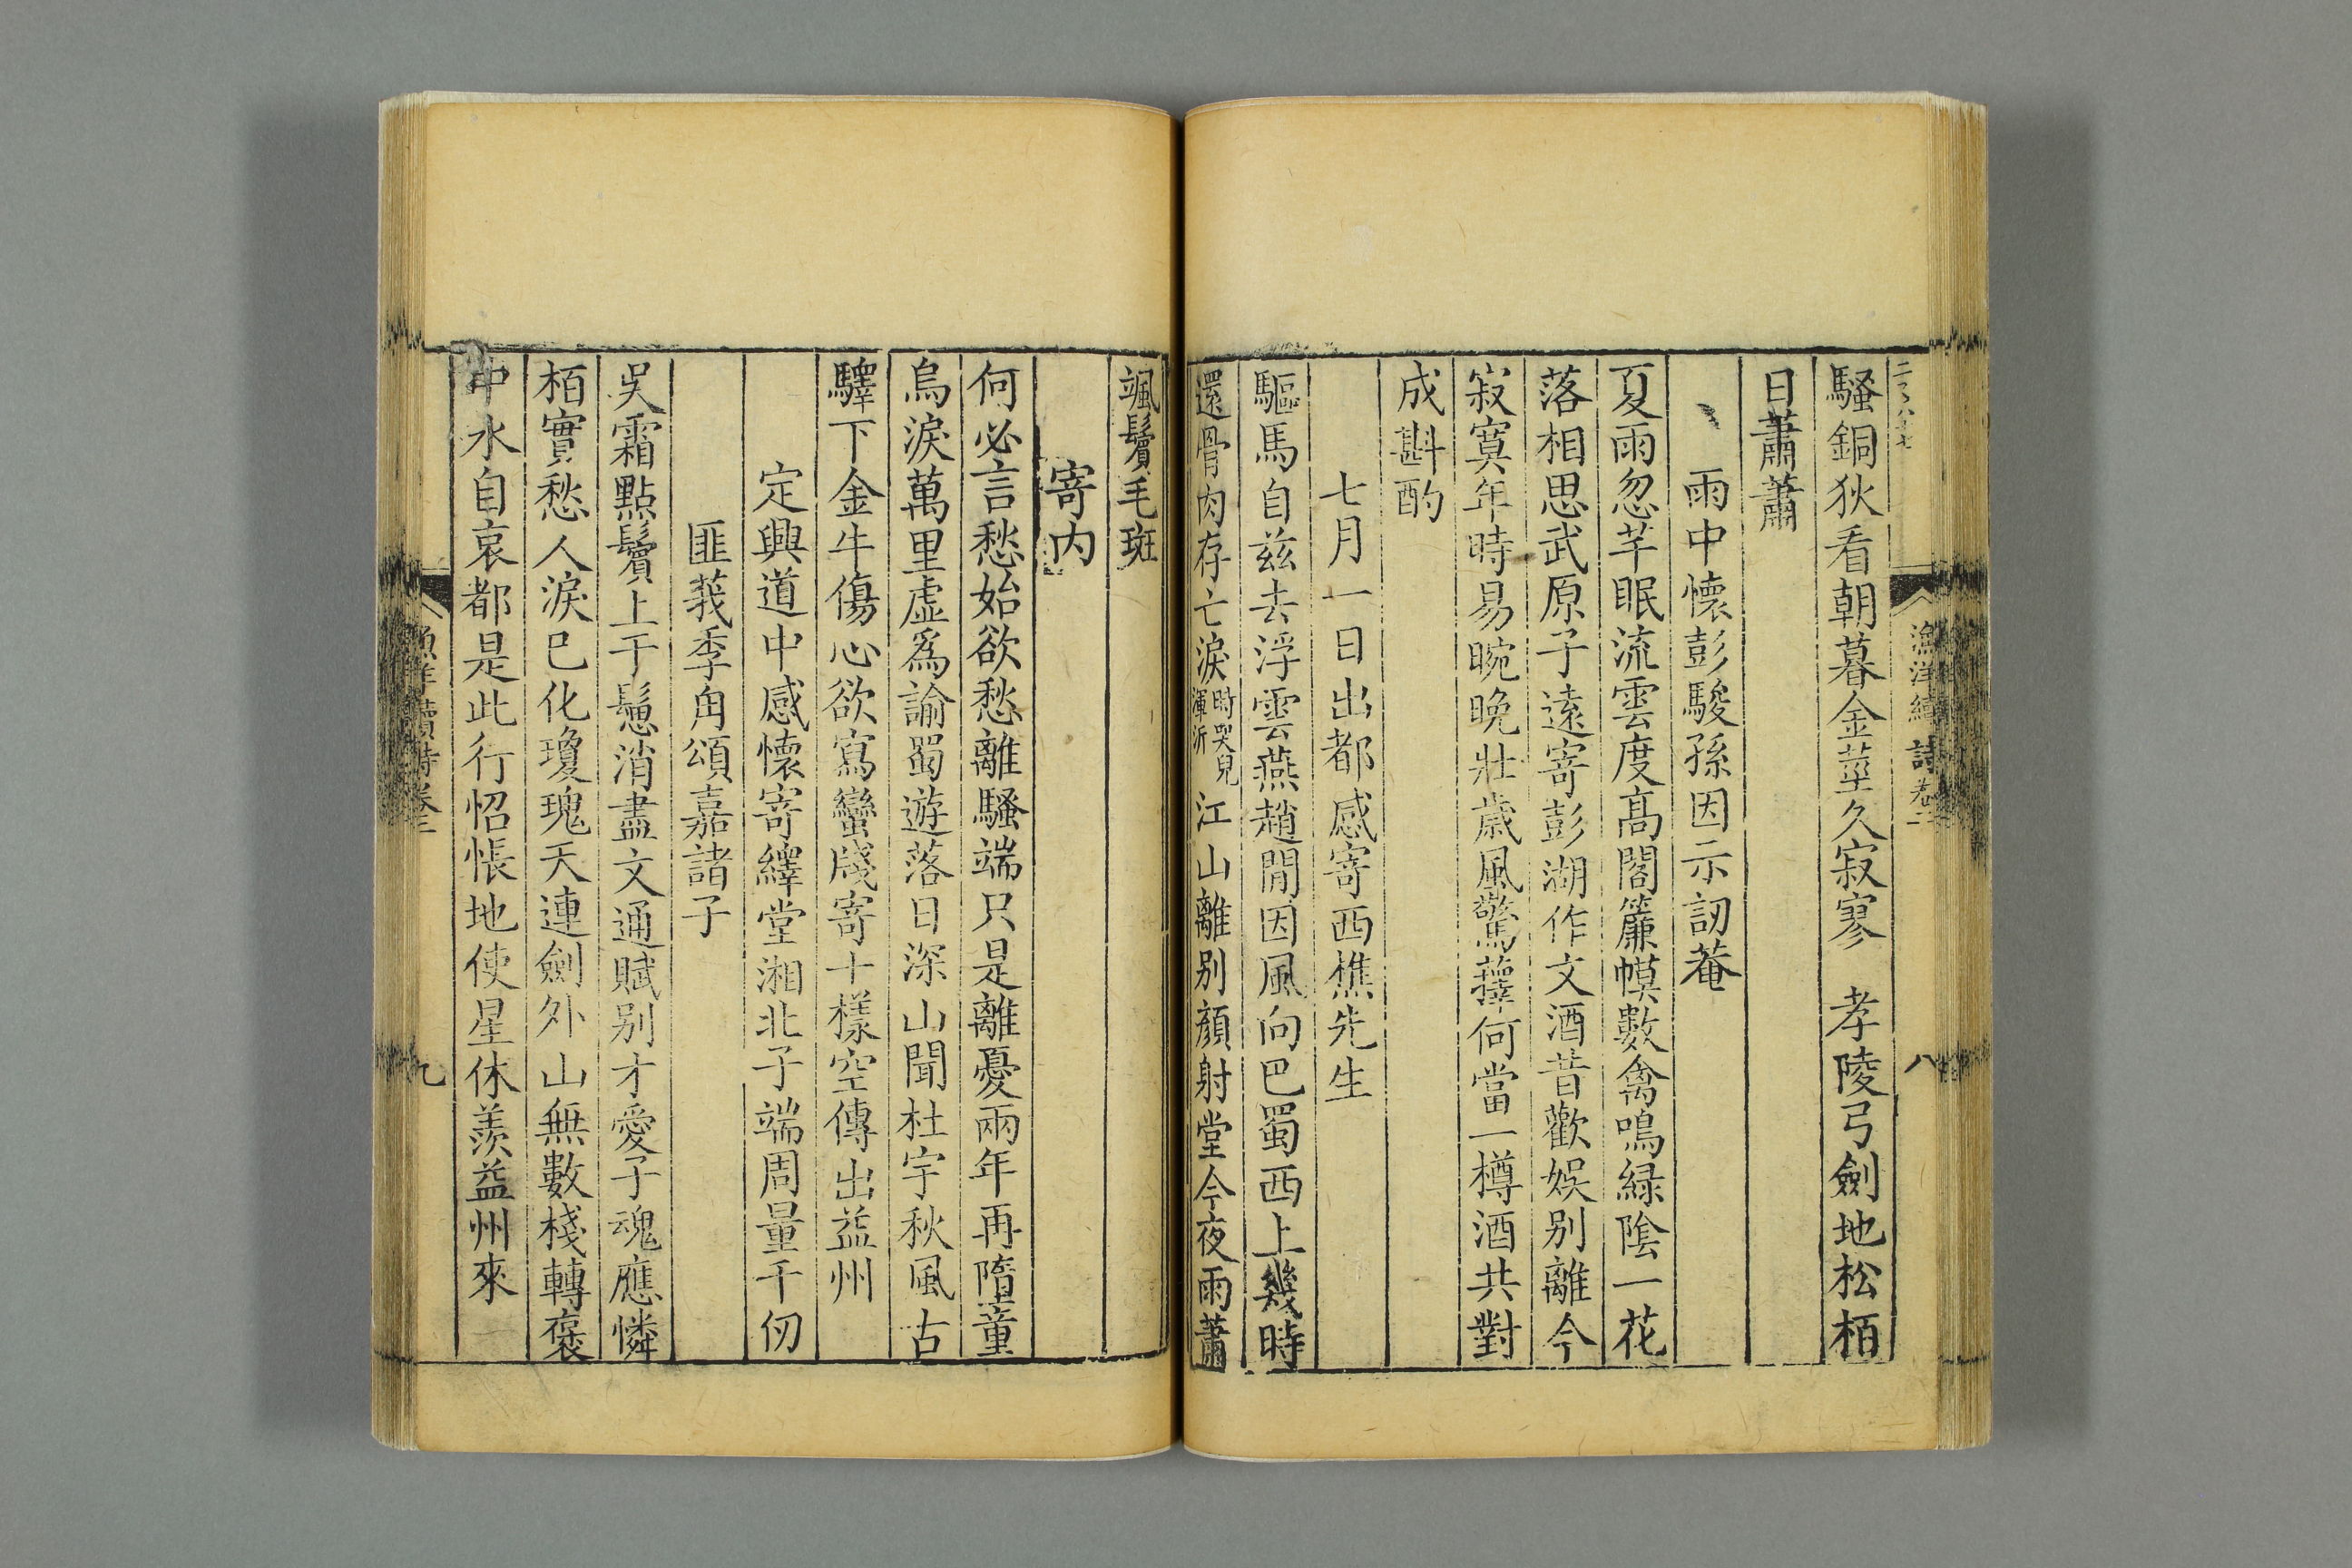 騷銅狄看朝暮金莖久寂寥　孝陵弓劍地松栢
日蕭蕭
雨中懷彭駿孫因示訒菴
夏雨忽芊眠流雲度高閣簾幙數禽鳴緑陰一花
落相思武原子遠寄彭湖作文酒昔歡娛别離今
寂寞年時易晼晚壯歳風驚蘀何當一樽酒共對
成斟酌
七月一日出都感寄西樵先生
驅馬自兹去浮雲燕趙間因風向巴蜀西上幾時
還骨肉存亡淚時哭兒渾沂江山離别顔射堂今夜雨蕭
颯鬢毛斑
寄内
何必言愁始欲愁離騷端只是離憂兩年再墮童
烏淚萬里虛爲諭蜀遊落日深山聞杜宇秋風古
驛下金牛傷心欲寫蠻牋寄十樣空傳出益州
定興道中感懷寄繹堂湘北子端周量千仞
匪莪季甪頌嘉諸子
吴霜點鬢上于鬕消盡文通賦别才愛子魂應憐
栢實愁人淚巳化瓊瑰天連劍外山無數棧轉褒
中水自哀都是此行怊悵地使星休羨益州來
漁洋續詩卷二
八
漁洋續詩卷二
九